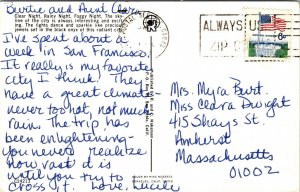 Bertie and Aunt Clara,
Clear Night, Rainy Night, Foggy Night. The sky-
line of the city is always interesting and exciting.
The lights dance and sparkle like precious
jewels set in the black onyx of this radiant city.
I've spent about a
week in San Francisco.
It really is my favorite
city I think. They
have a great climate-
never too hot, not much
rain. The trip has
been enlightening-
you never realize
how vast it is
until you try to
cross it. Love, Lucile
ALWAYS U
Mrs. Myra Burt
Miss Clara Dwight
415 Shays St.
Amherst
Massachusetts
01002